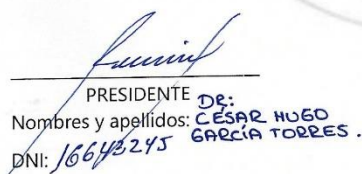 PRESIDENTE
Nombres y apellidos: DR: CÉSAR HUGO
GARCÍA TORRES.
DNI: 16643245